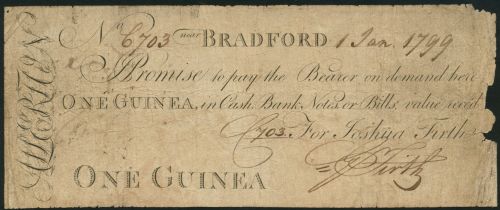 ALLERTON
No C703 near BRADFORD 1 Jan. 1799
I Promise to pay the Bearer on demand here
ONE GUINEA, in Cash, Bank Notes or Bills, value reced.
C703 For Joshua Firth
JFirth
ONE GUINEA